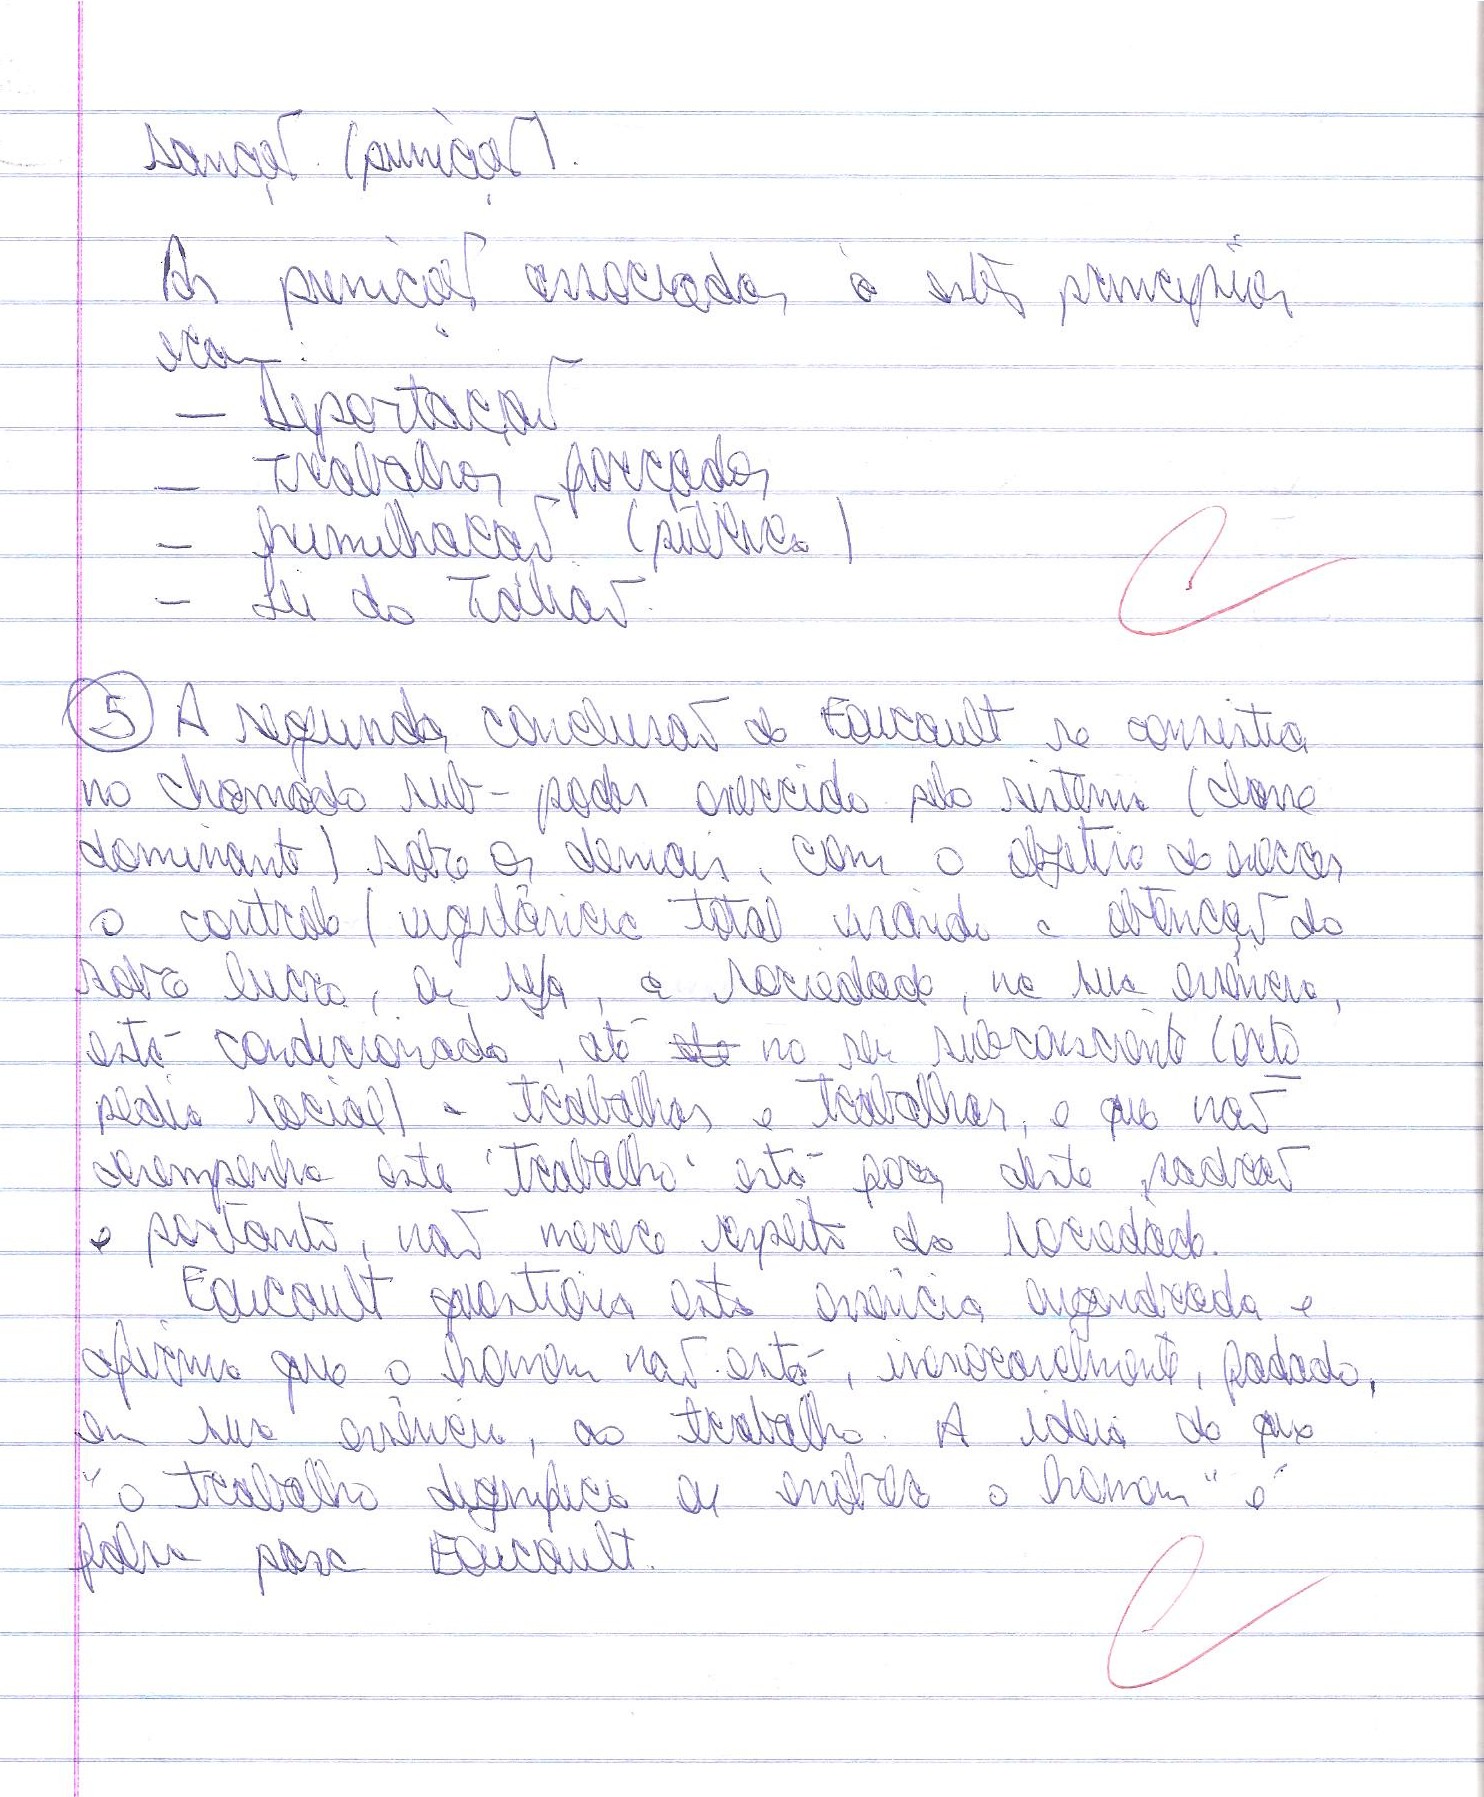 sanção (punição).
As punições associadas à estes princípios
eram:
- Deportação
- Trabalhos forçados
- humilhação (pública)
- Lei do Talião.
5 A segunda conclusão de Foucault se consistia
no chamado sub-poder exercido pelo sistema (classe
dominante) sobre os demais, com o objetivo de exercer
o controle / vigilância total visando a obtenção do
sobre lucro, ou seja, a sociedade, na sua essência,
está condicionada, até no seu subconsciente (orto
pedia social) a trabalhar e trabalhar, e que não
desempenha este "trabalho" está fora deste padrão
e portanto, não merece respeito da sociedade.
Foucault questiona esta essência engendrada e
afirma que o homem não está, inexoravelmente, fadado,
em sua essência, ao trabalho. A ideia de que
"o trabalho dignifica ou enobrece o homem" é
falsa para Foucault.